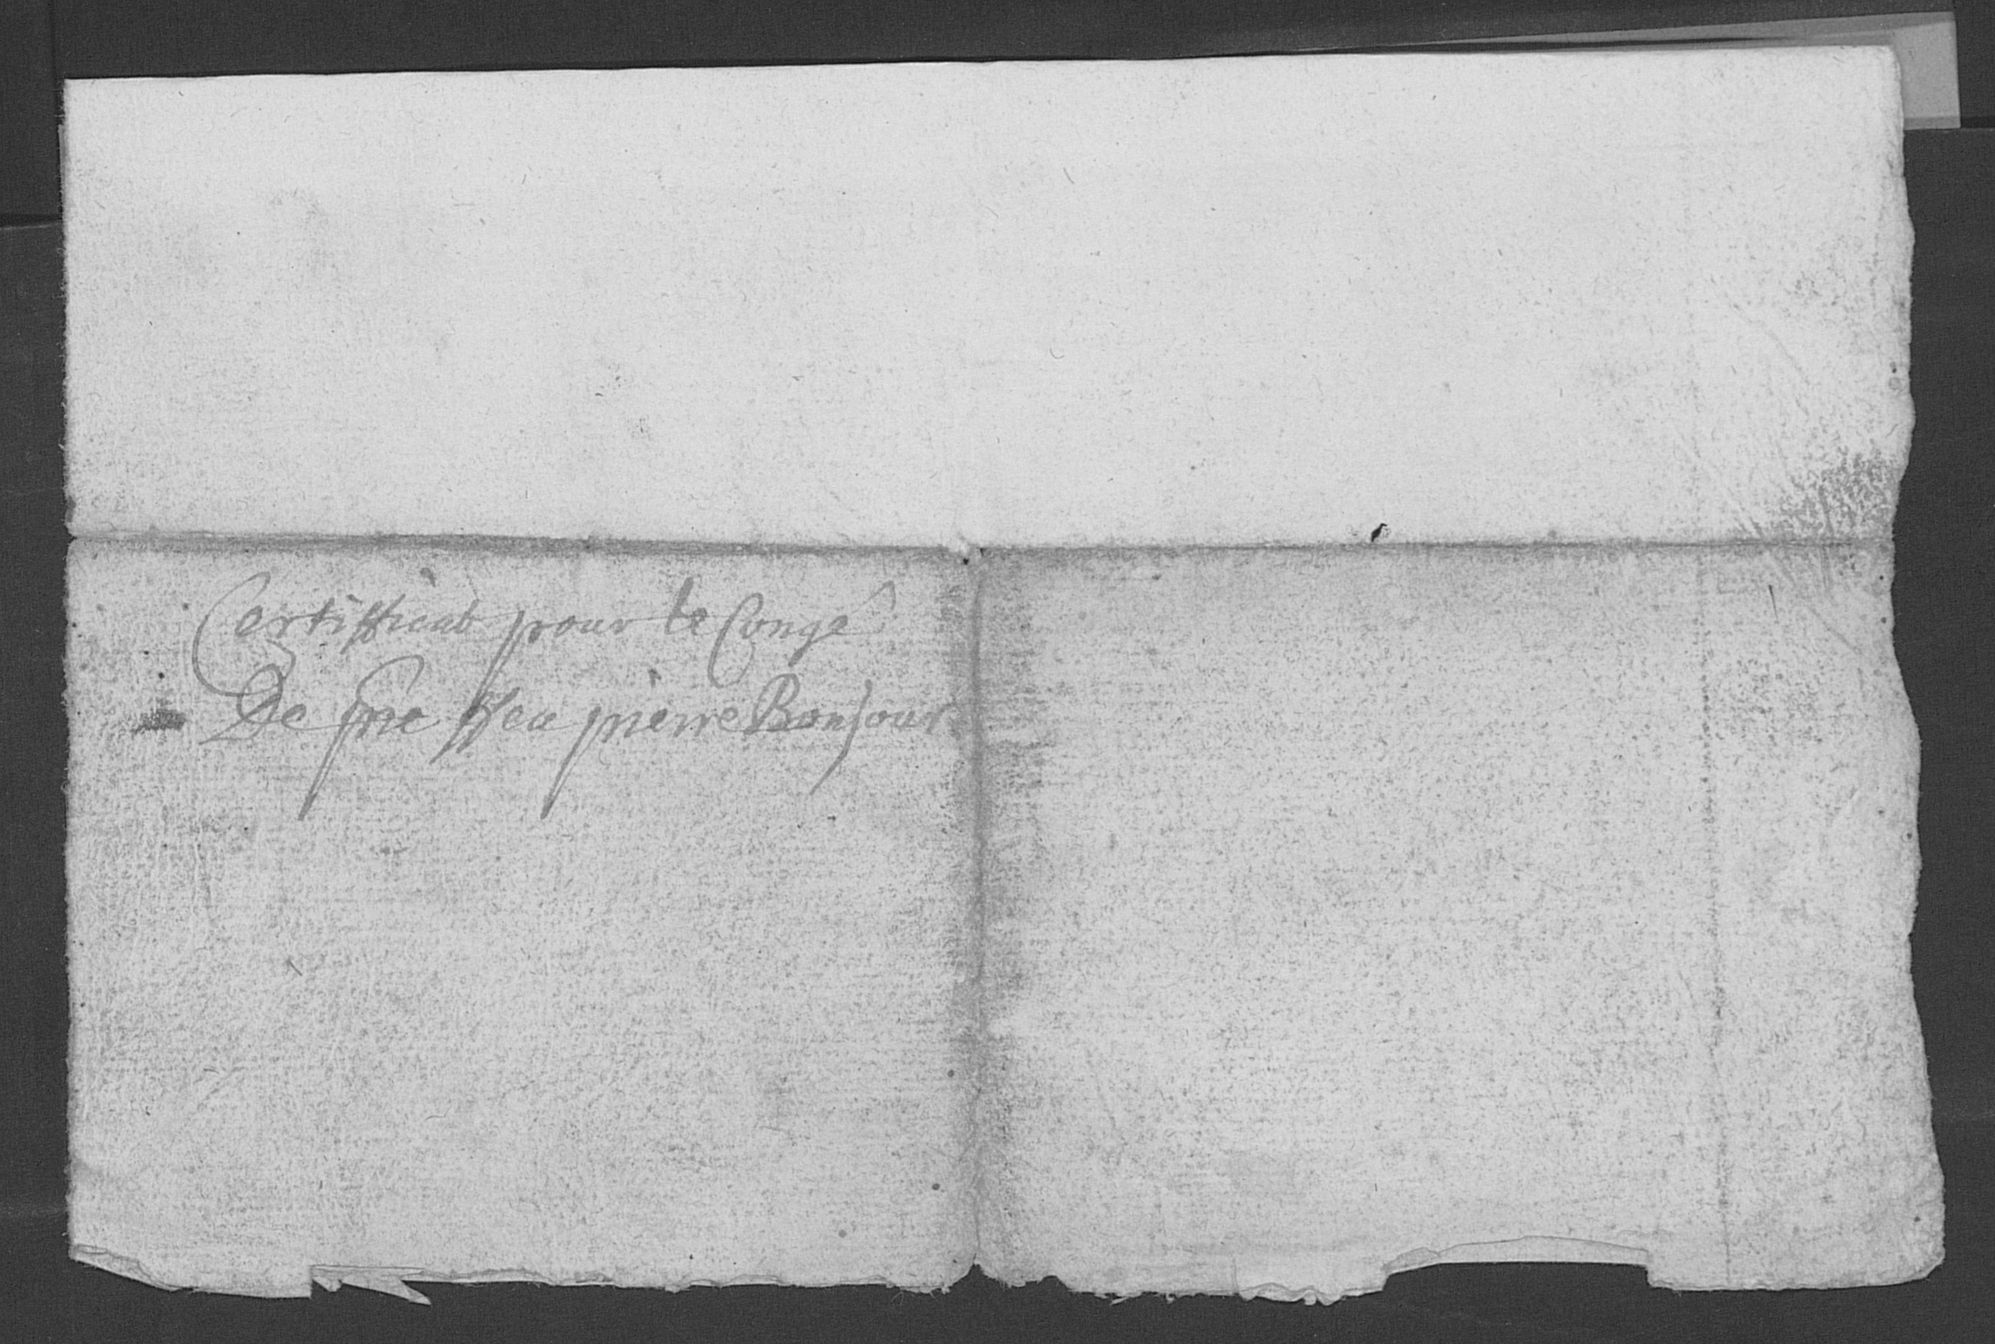 Certifficat pour le Congé
De pierre Bonjour